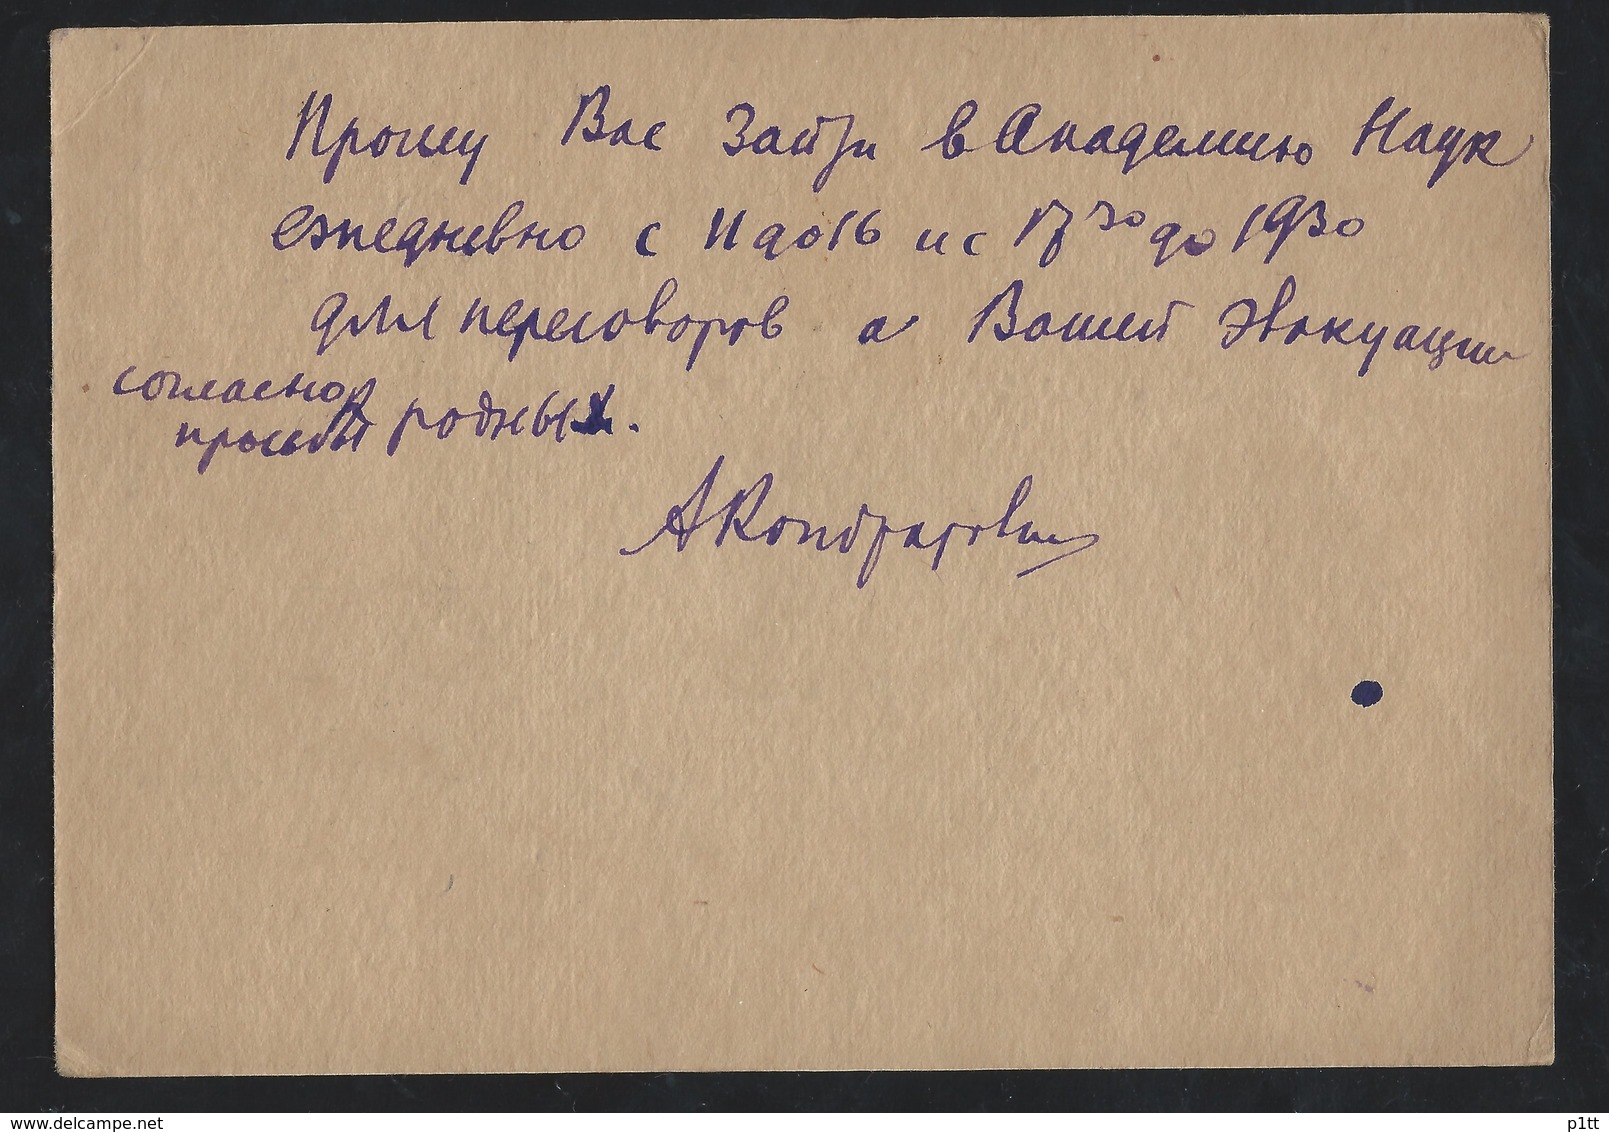 Прошу Вас зайти в Академию Наук
ежедневно с 11 до 16 и с 17³⁰ до 19³⁰
для переговоров о Вашей эвакуации
согласно
просьбы родных.
АКондратович
delcampe.net
p1tt